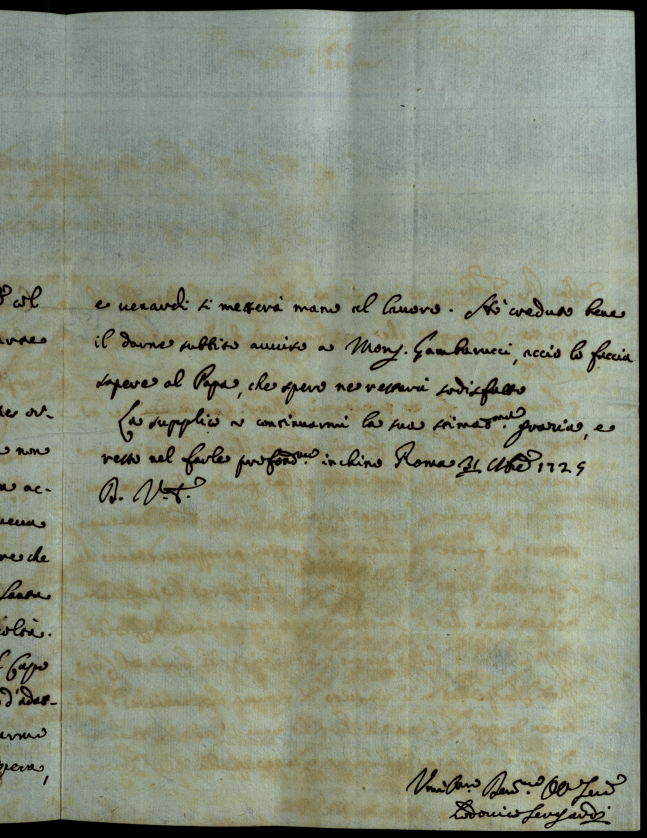 e venardi si metterà mano al lavoro. Hò creduto bene
il darne subbito avviso a Mons.r Gambarucci, acciò lo faccia
sapere al Papa, che spero ne resterà sodisfatto
La supplico a continuarmi la sua stimas.ma grazia, e
resto nel farle profond.mo inchino Roma 31 Ubre 1725
D. V. S.
col
non
ac-
re che
Santa
Capo
d'adat-
opera,
Umilis.mo Dev.mo Obl. Serv.
Lodovico Sergardi